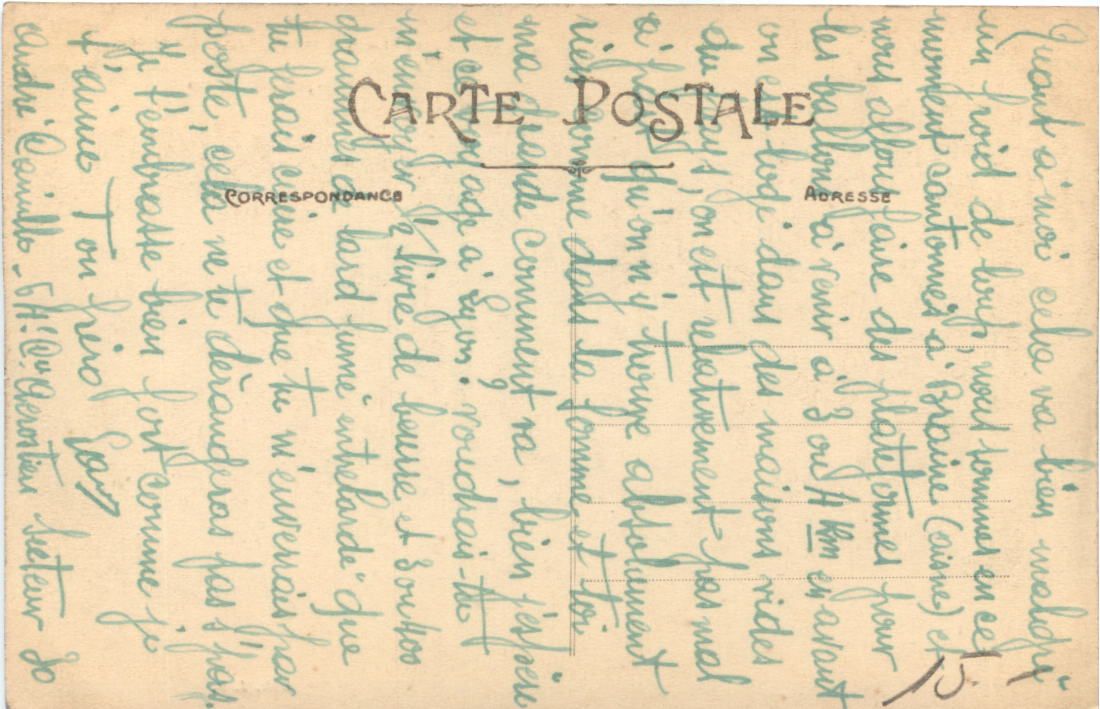 CARTE POSTALE
CORRESPONDANCE
ADRESSE
Quant à moi cela va bien malgré
un froid de loup, nous sommes en ce
moment cantonnés à Braine (aisne) et
nous allons faire des plateformes pour
les ballons à venir à 3 ou 4 km en avant
on est logé dans des maisons vides
du pays, on est relativement pas mal
à qu'on n'y trouve absolument
rien comme dans la Somme et toi
ma comment va, bien j'espère
et ton à Lyon? voudrais-tu
m'envoyer 1/2 livre de beurre et 3 ou 400
grammes de lard fumé "entrelardé" que
tu ferais cuire et que tu m'enverrais par
poste, cela ne te dérangeras pas j'espèr.
Je t'embrasse bien fort comme je
t'aime Ton frère
André Caillo - 5 A. secteur 80
15